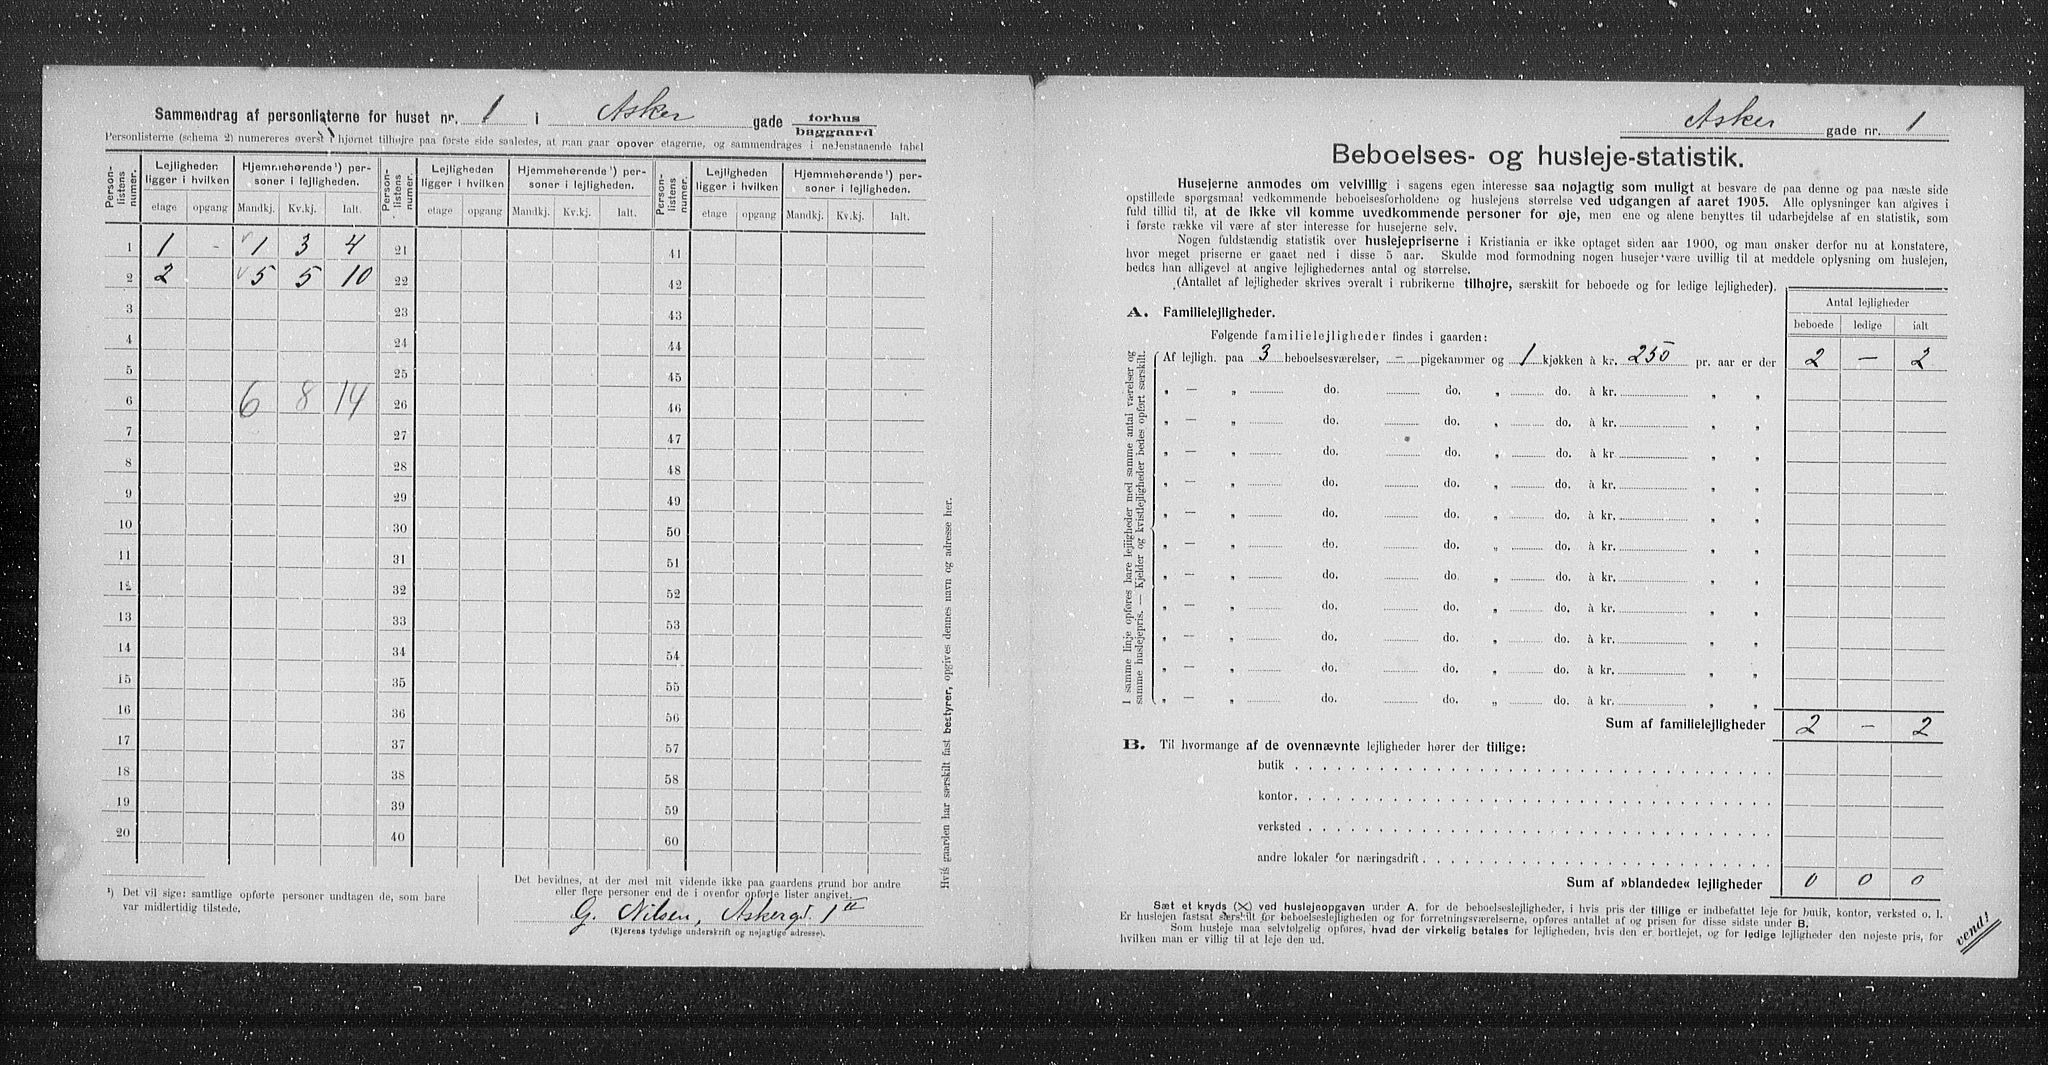 Sammendrag af personlisterne for huset nr. 1 i Asker gade forhus
baggaard
Personlisterne (schema 2) numereres øverst i hjørnet tilhøjre paa første side saaledes, at man gaar opover etagerne, og sammendrages i nedenstaaende tabel
Person-listens numer. Lejligheden ligger i hvilken Hjemmehørende¹) personer i lejligheden. Person-listens numer. Lejligheden ligger i hvilken Hjemmehørende¹) personer i lejligheden. Person-listens numer. Lejligheden ligger i hvilken Hjemmehørende¹) personer i lejligheden.
etage opgang Mandkj. Kv.kj. Ialt. etage opgang Mandkj. Kv.kj. Ialt. etage opgang Mandkj. Kv.kj. Ialt.
1 1 - 1 3 4 21 41
2 2 5 5 10 22 42
3 23 43
4 24 44
5 25 45
6 6 8 14 26 46
7 27 47
8 28 48
9 29 49
10 30 50
11 31 51
12 32 52
13 33 53
14 34 54
15 35 55
16 36 56
17 37 57
18 38 58
19 39 59
20 40 60
¹) Det vil sige: samtlige opførte personer undtagen de, som bare
var midlertidig tilstede.
Det bevidnes, at der med mit vidende ikke paa gaardens grund bor andre
eller flere personer end de i ovenfor opførte lister angivet.
G. Nilsen, Askergd. 1 II
(Ejerens tydelige underskrift og nøjagtige adresse).
Hvis gaarden har særskilt fast bestyrer, opgives dennes navn og adresse her.
Asker gade nr. 1
Beboelses- og husleje-statistik.
Husejerne anmodes om velvillig i sagens egen interesse saa nøjagtig som muligt at besvare de paa denne og paa næste side
opstillede spørgsmaal vedkommende beboelsesforholdene og huslejens størrelse ved udgangen af aaret 1905. Alle oplysninger kan afgives i
fuld tillid til, at de ikke vil komme uvedkommende personer for øje, men ene og alene benyttes til udarbejdelse af en statistik, som
i første række vil være af stor interesse for husejerne selv.
Nogen fuldstændig statistik over huslejepriserne i Kristiania er ikke optaget siden aar 1900, og man ønsker derfor nu at konstatere,
hvor meget priserne er gaaet ned i disse 5 aar. Skulde mod formodning nogen husejer være uvillig til at meddele oplysning om huslejen,
bedes han alligevel at angive lejlighedernes antal og størrelse.
(Antallet af lejligheder skrives overalt i rubrikerne tilhøjre, særskilt for beboede og for ledige lejligheder).
Antal lejligheder
beboede ledige ialt
A. Familielejligheder.
Følgende familielejligheder findes i gaarden:
I samme linje opføres bare lejligheder med samme antal værelser og
samme huslejepris. — Kjelder og kvistlejligheder bedes opført særskilt.
Af lejligh. paa 3 beboelsesværelser, - pigekammer og 1 kjøkken à kr. 250 pr. aar er der 2 - 2
„ — „ do. do. „ do. à kr. „ „
„ — „ do. do. „ do. à kr. „ „
„ — „ do. do. „ do. à kr „ „
„ — „ do. do. „ do. à kr. „ „
„ — „ do. do. „ do. à kr. „ „
„ — „ do. do. „ do. à kr. „ „
„ — „ do. do. „ do. à kr. „ „
„ — „ do. do. „ do. à kr. „ „
„ — „ do. do. „ do. à kr. „ „
„ — „ do. do. „ do. à kr. „ „
„ — „ do. do. „ do. à kr. „ „
Sum af familielejligheder 2 - 2
B. Til hvormange af de ovennævnte lejligheder hører der tillige:
butik
kontor
verksted
andre lokaler for næringsdrift
Sum af »blandede« lejligheder 0 0 0
Sæt et kryds (X) ved huslejeopgaven under A. for de beboelseslejligheder, i hvis pris der tillige er indbefattet leje for butik, kontor, verksted o. l.
Er huslejen fastsat særskilt for beboelseslejligheden og for forretningsværelserne, opføres antallet af og prisen for disse sidste under B.
Som husleje maa selvfølgelig opføres, hvad der virkelig betales for lejligheden, hvis den er bortlejet, og for ledige lejligheder den nøjeste pris, for
hvilken man er villig til at leje den ud.
vend!